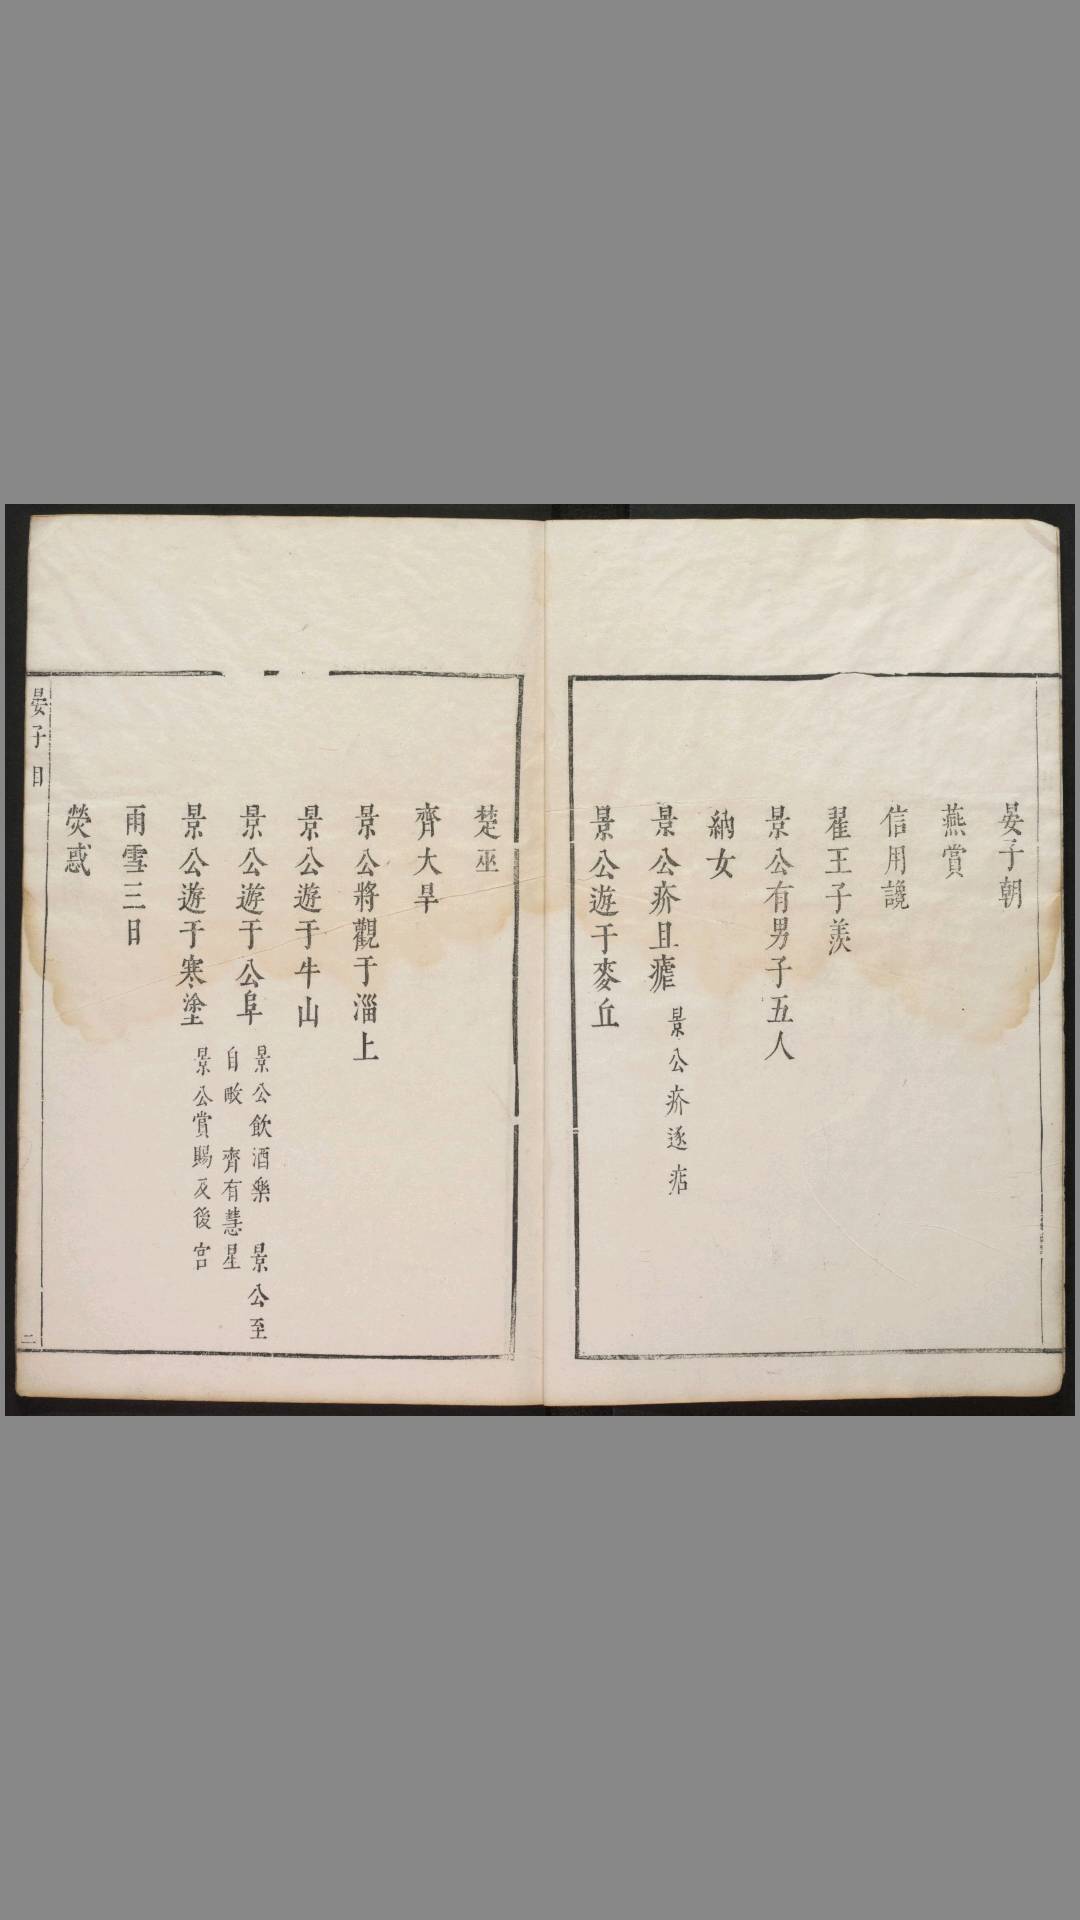 晏子朝
燕賞
信用讒
翟王子羨
景公有男子五人
納女
景公疥且瘧 景公疥遂痁
景公遊于麥丘
楚巫
齊大旱
景公將觀于淄上
景公遊于牛山
景公遊于公阜 景公飲酒樂 景公至
自畋 齊有慧星
景公遊于寒塗 景公賞賜及後宮
雨雪三日
熒惑
晏子目
二